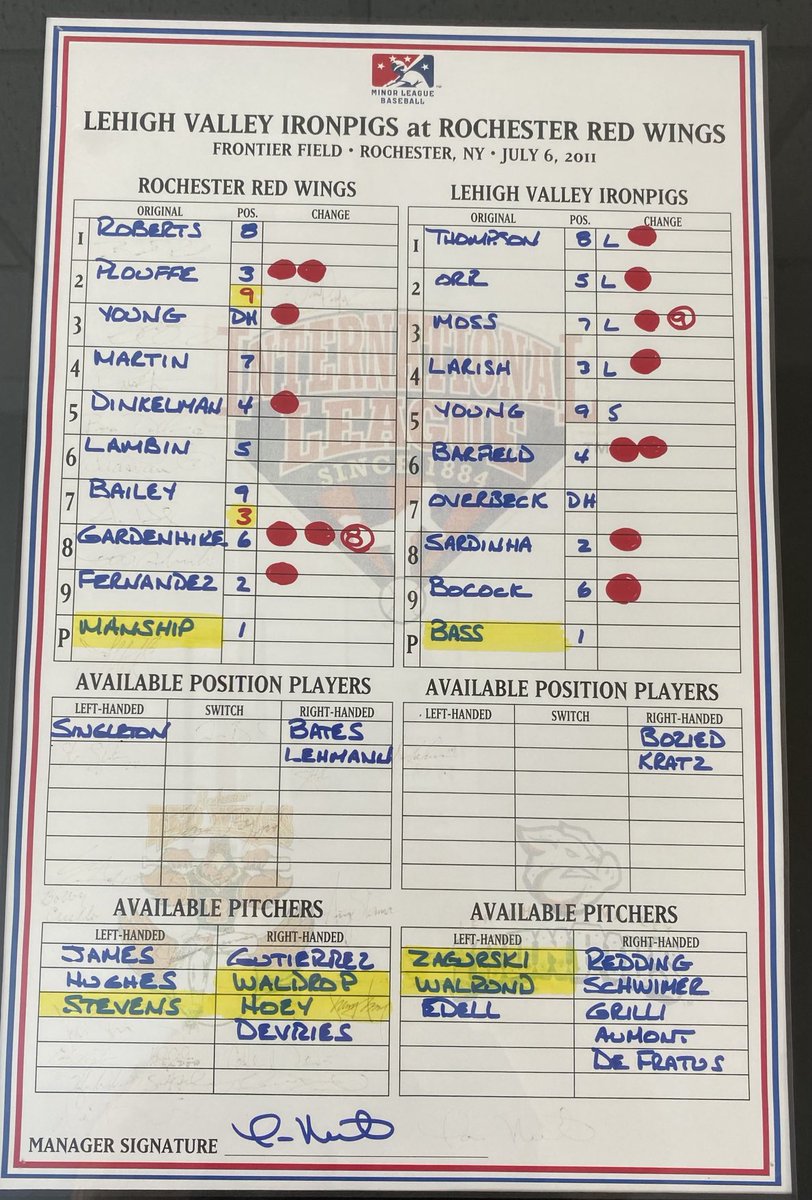 MINOR LEAGUE
BASEBALL
LEHIGH VALLEY IRONPIGS at ROCHESTER RED WINGS
FRONTIER FIELD • ROCHESTER, NY • JULY 6, 2011
ROCHESTER RED WINGS
ORIGINAL POS. CHANGE
1 ROBERTS 8
2 PLOUFFE 3
9
3 YOUNG DH
4 MARTIN 7
5 DINKELMAN 4
6 LAMBIN 5
7 BAILEY 9
3
8 GARDENHIRE 6 8
9 FERNANDEZ 2
P MANSHIP 1
LEHIGH VALLEY IRONPIGS
ORIGINAL POS. CHANGE
1 THOMPSON 8 L
2 ORR 5 L
3 MOSS 7 L 9
4 LARISH 3 L
5 YOUNG 9 S
6 BARFIELD 4
7 OVERBECK DH
8 SARDINHA 2
9 BOCOCK 6
P BASS 1
INTERNATIONAL
LEAGUE
SINCE 1884
AVAILABLE POSITION PLAYERS
LEFT-HANDED SWITCH RIGHT-HANDED
SINGLETON BATES
LEHMANN
AVAILABLE POSITION PLAYERS
LEFT-HANDED SWITCH RIGHT-HANDED
BOZIED
KRATZ
AVAILABLE PITCHERS
LEFT-HANDED RIGHT-HANDED
JAMES GUTIERREZ
HUGHES WALDROP
STEVENS HOEY
DEVRIES
AVAILABLE PITCHERS
LEFT-HANDED RIGHT-HANDED
ZAGURSKI REDDING
WALROND SCHWIMER
EDELL GRILLI
AUMONT
DE FRATUS
MANAGER SIGNATURE